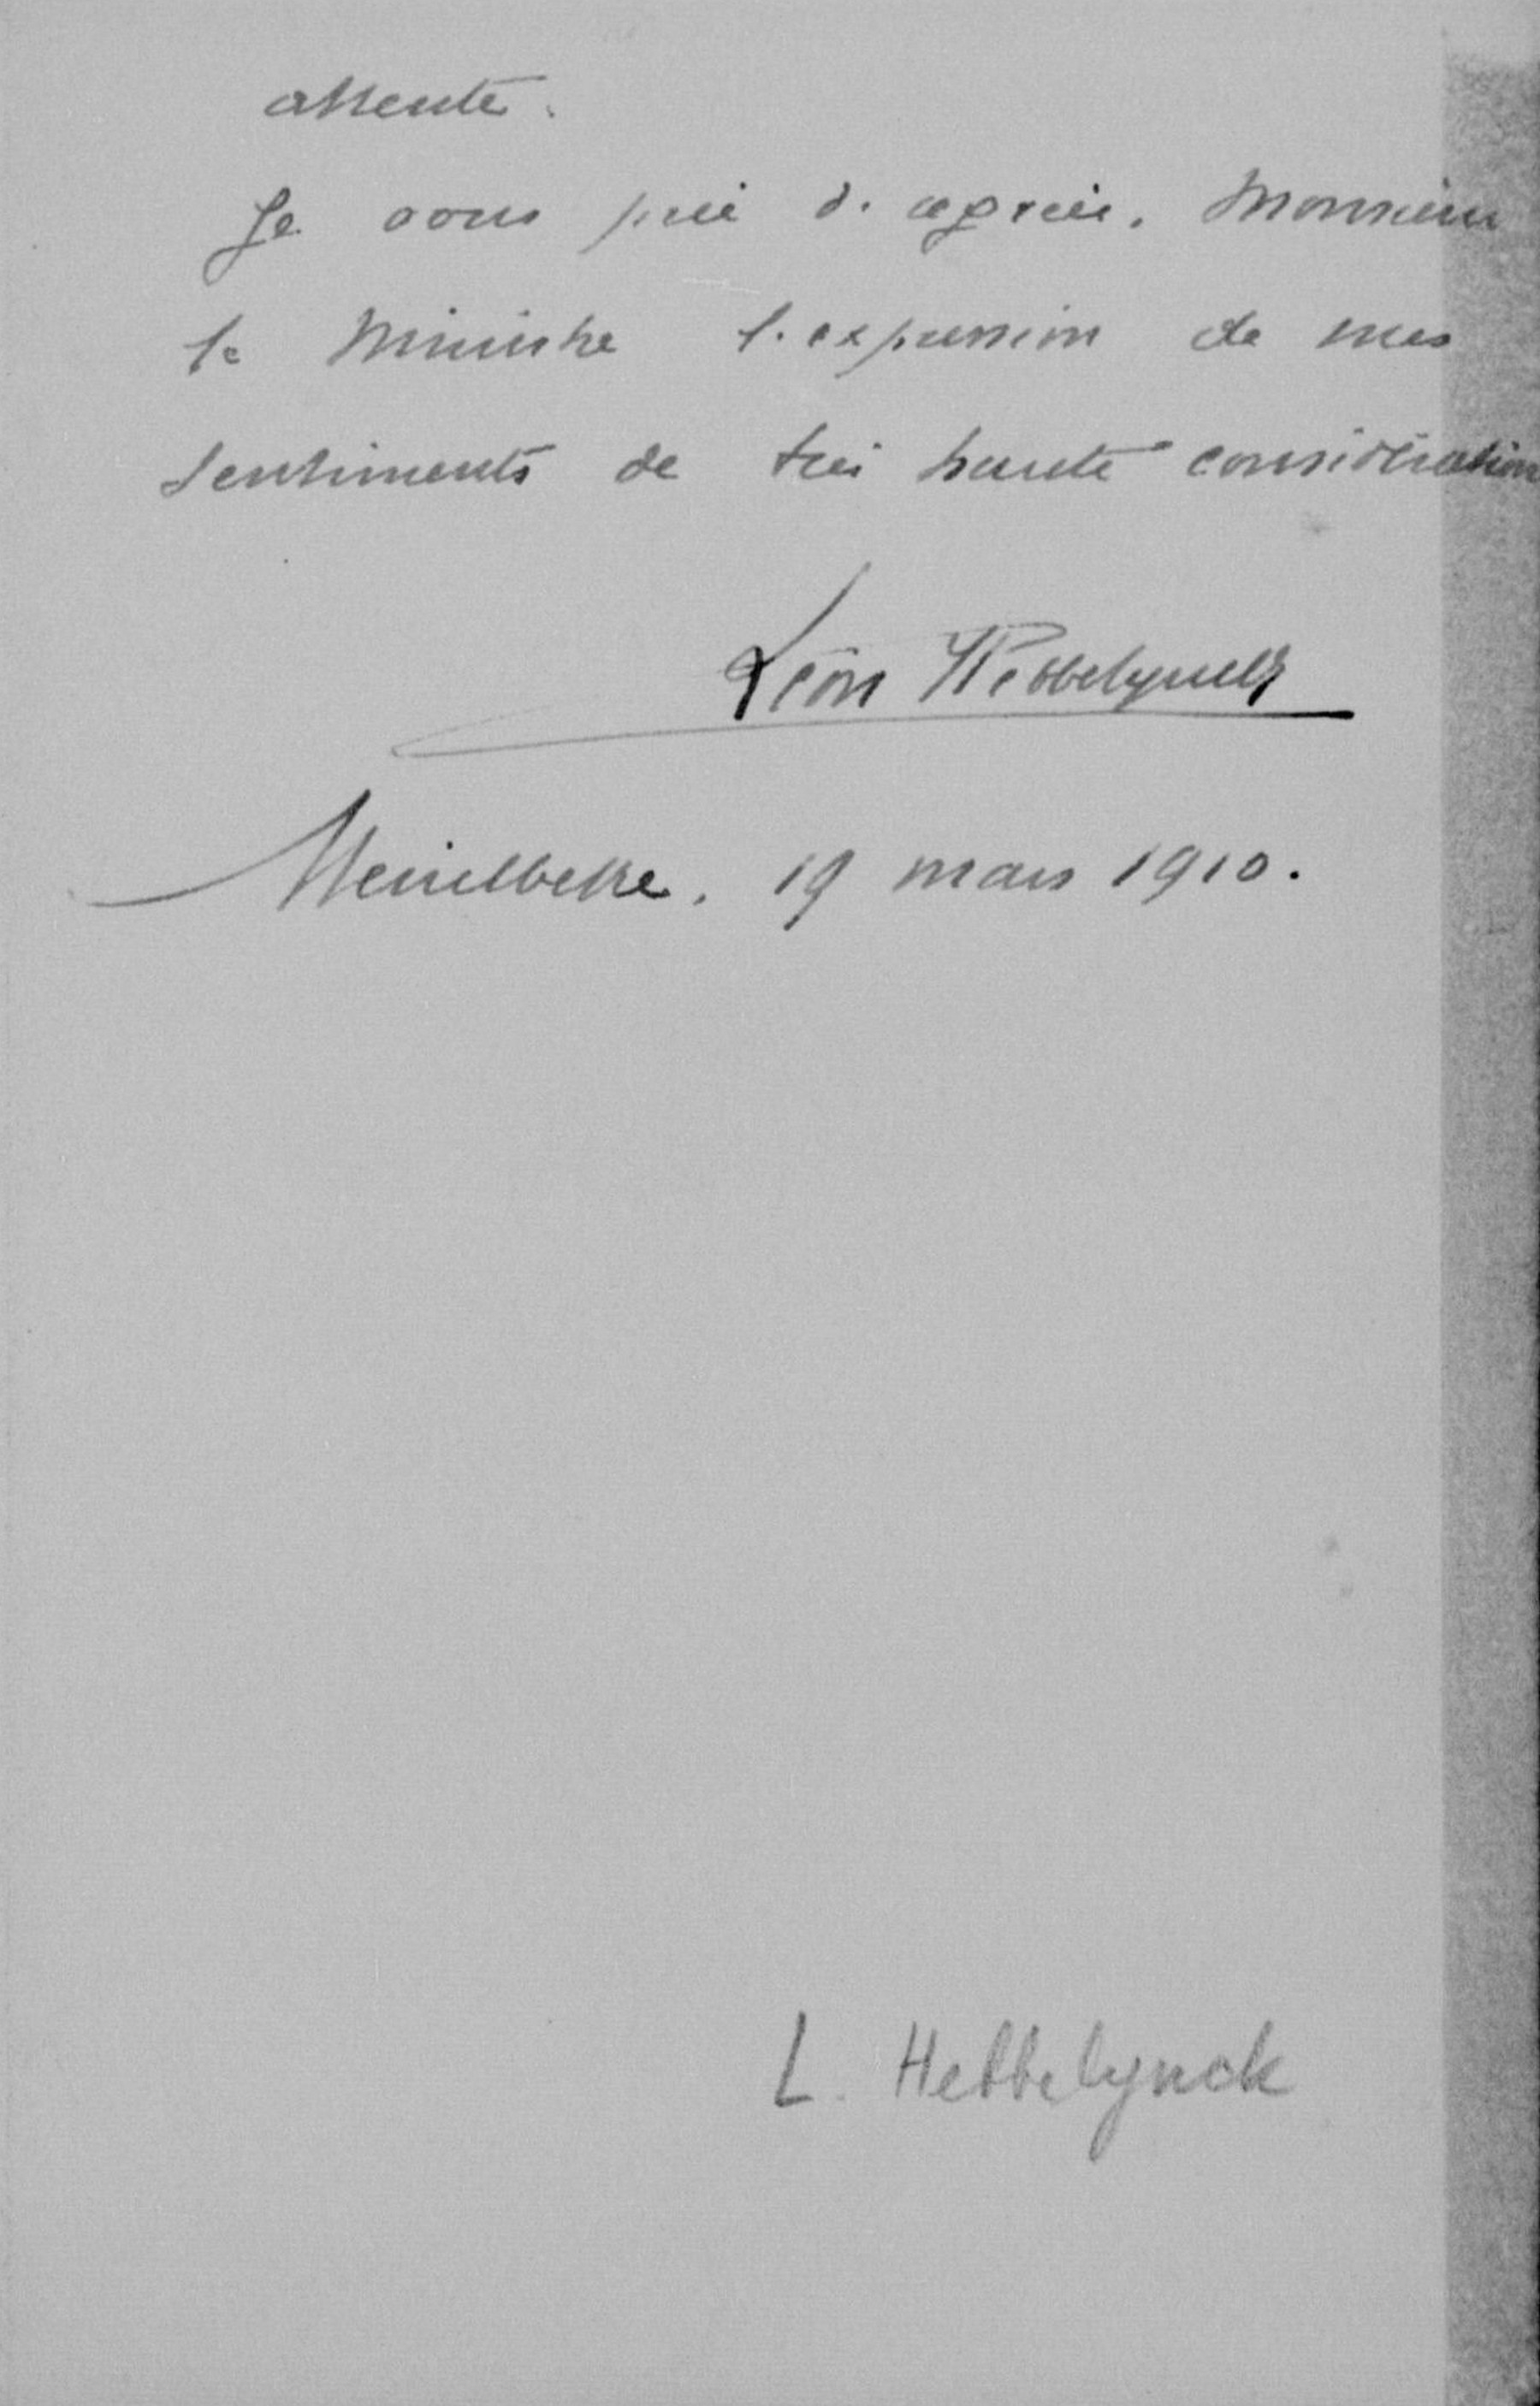 attente.
Je vous prie d'agréer, Monsieur
le Ministre l'expression de mes
sentiments de très haute considération
Léon Hebbelynck
Meirelbeke, 19 mars 1910.
L. Hebbelynck